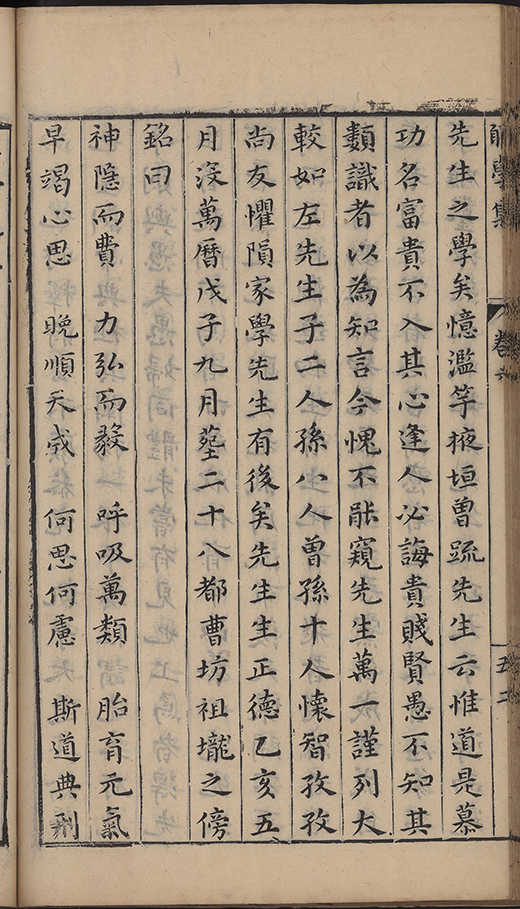 願學集 卷六 五二
先生之學矣憶濫竽掖垣曾疏先生云惟道是慕
功名富貴不入其心逢人必誨貴賤賢愚不知其
類識者以為知言今愧不能窺先生萬一謹列大
較如左先生子二人孫八人曾孫十人懷智孜孜
尚友懼隕家學先生有後矣先生生正德乙亥五
月沒萬曆戊子九月塟二十八都曹坊祖壠之傍
銘曰
神隱而費 力弘而毅 呼吸萬類 胎育元氣
早竭心思 晚順天成 何思何慮 斯道典刑